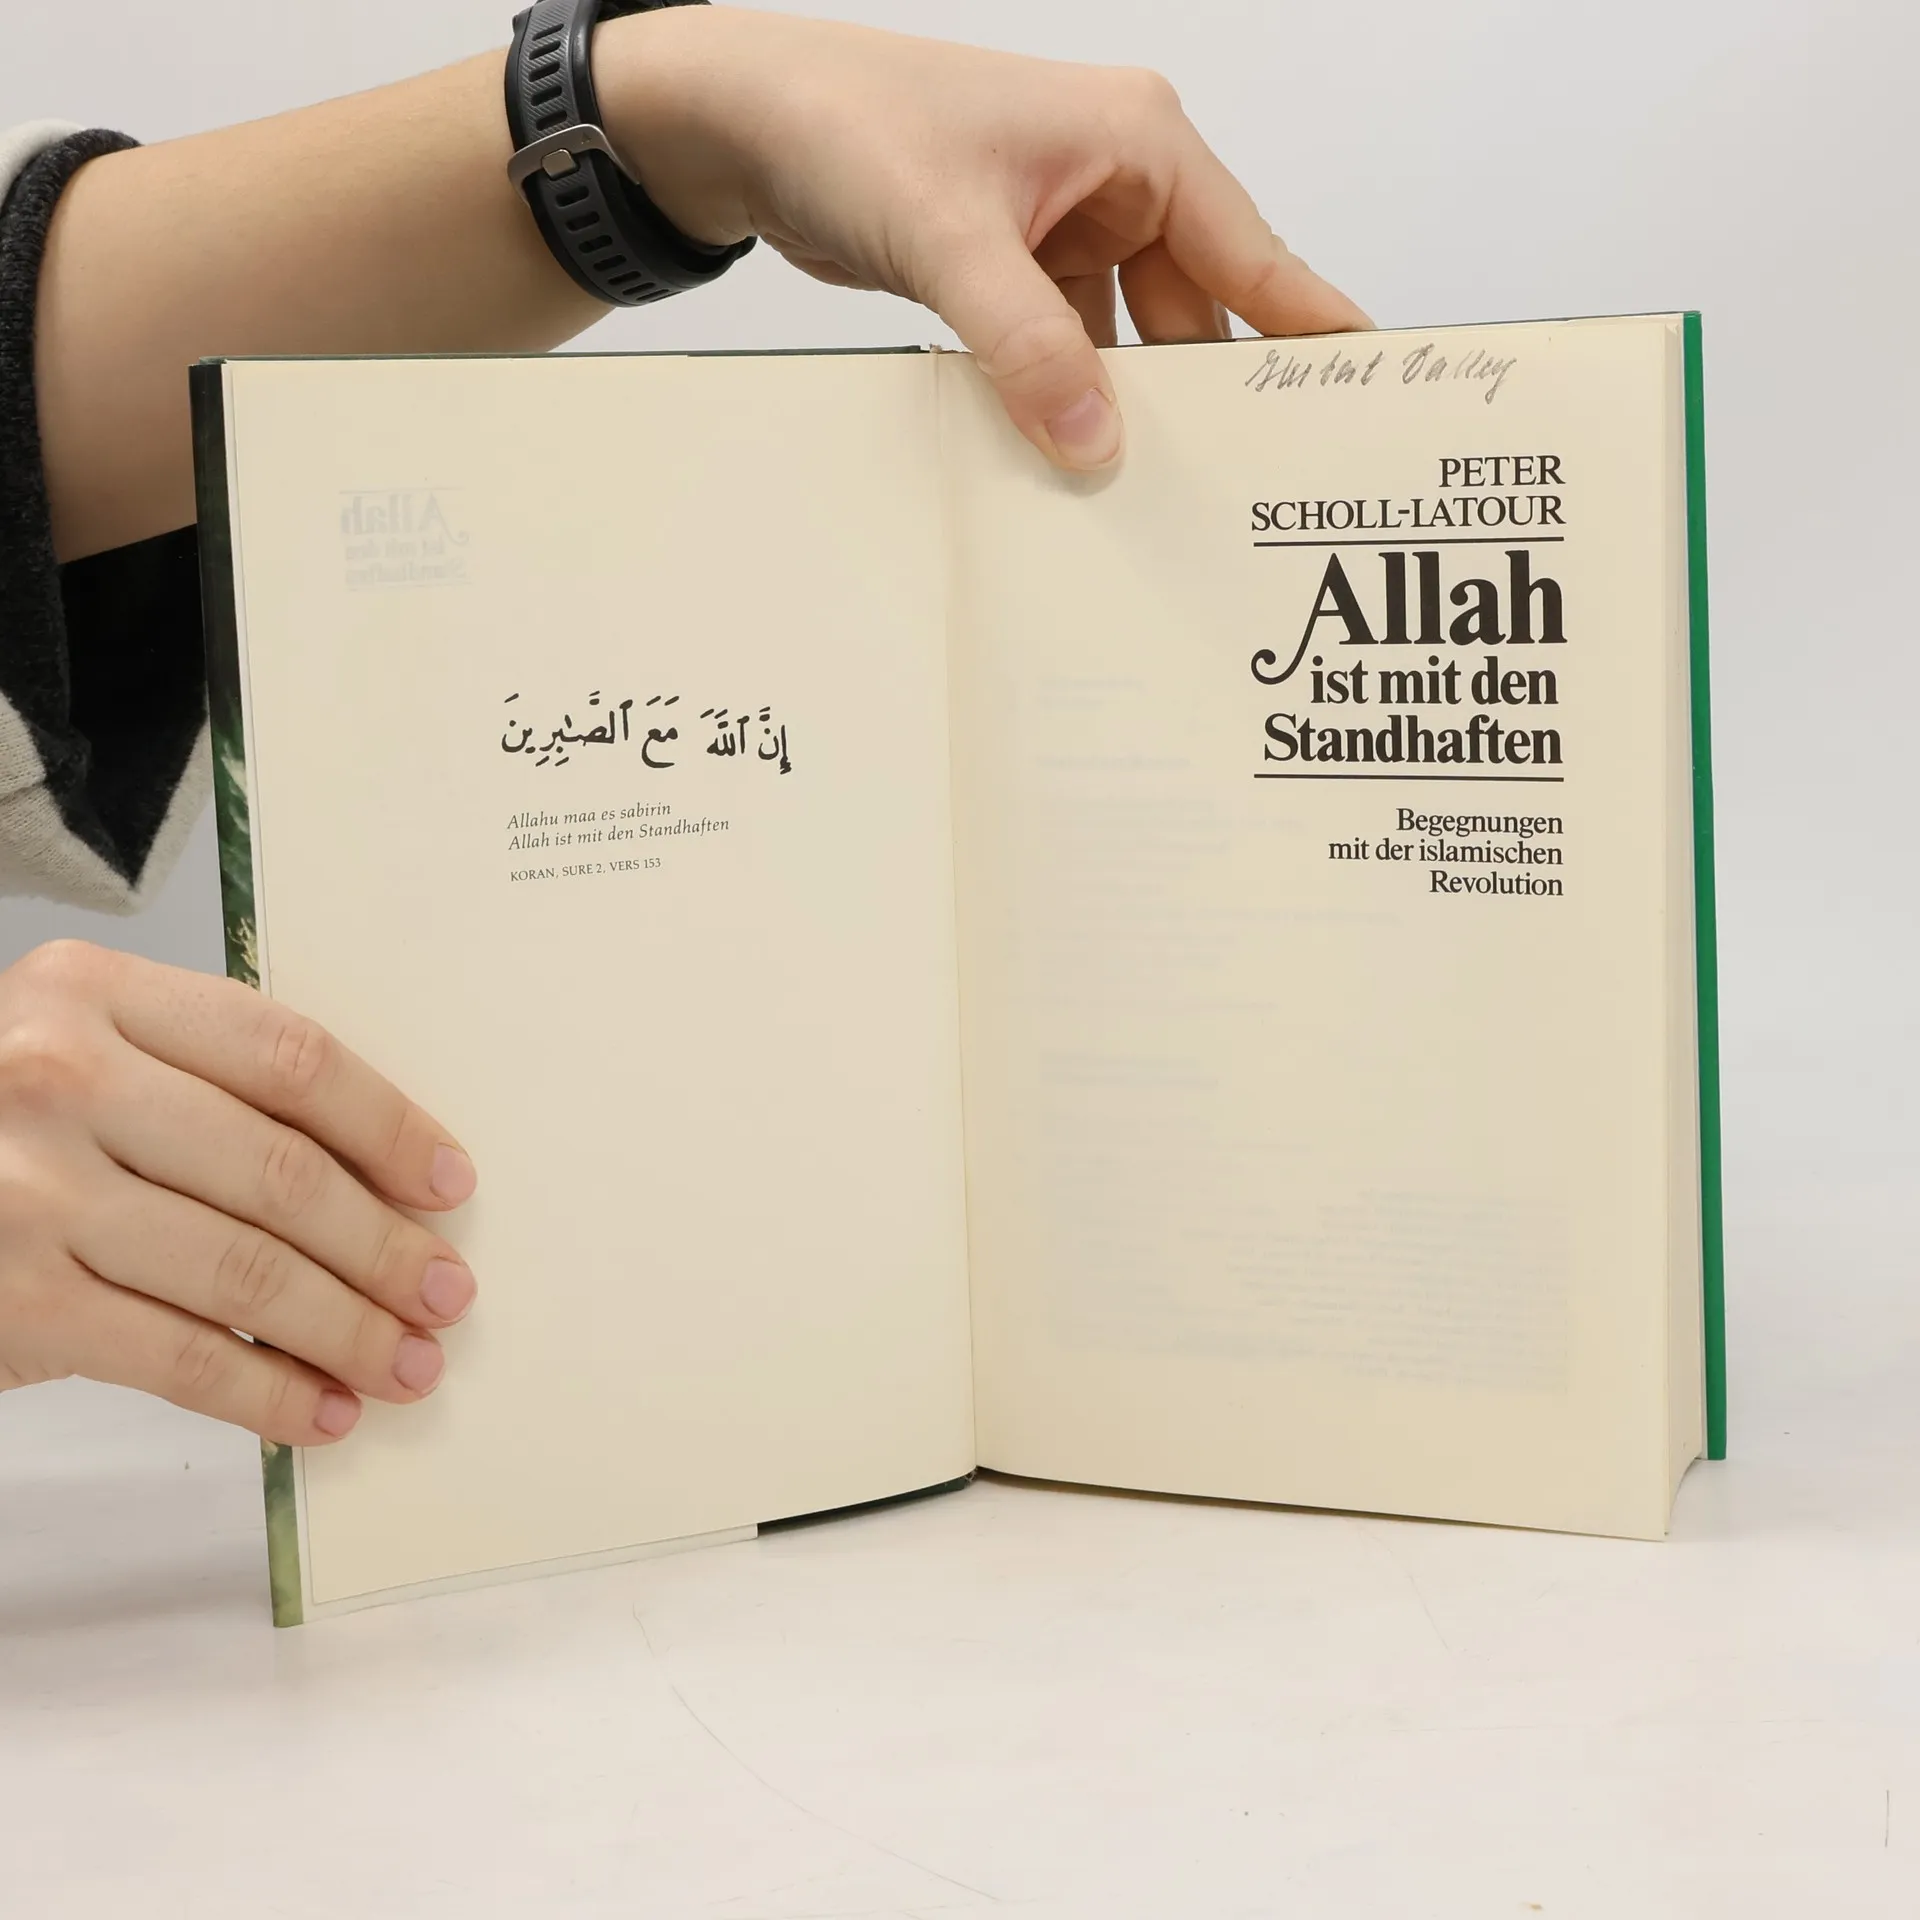 إِنَّ ٱللَّهَ مَعَ ٱلصَّـٰبِرِينَ
Allahu maa es sabirin
Allah ist mit den Standhaften
KORAN, SURE 2, VERS 153
PETER
SCHOLL-LATOUR
Allah
ist mit den
Standhaften
Begegnungen
mit der islamischen
Revolution